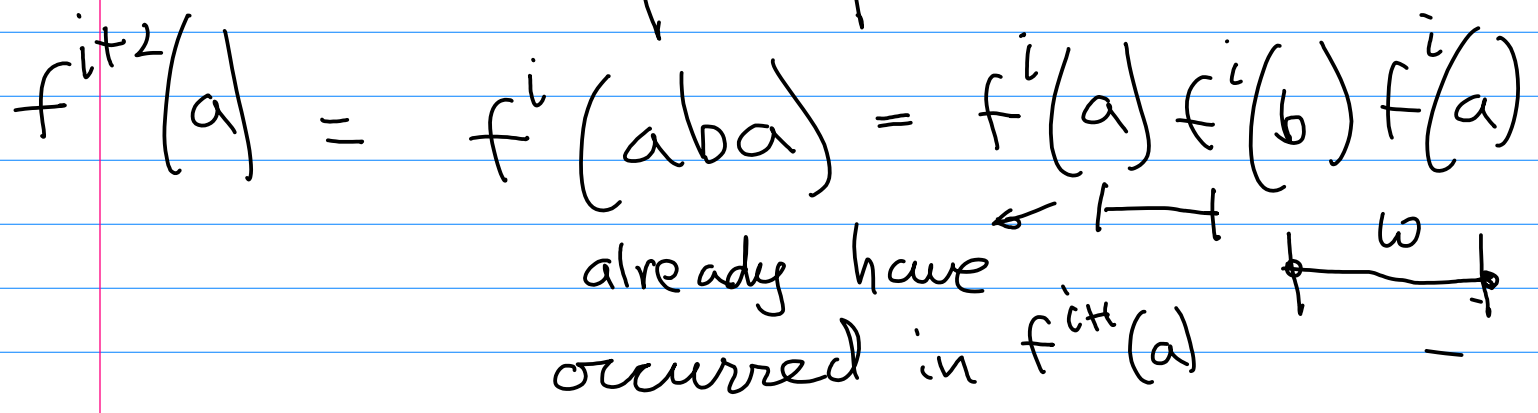 f^{i+2}(a) = f^i(aba) = f^i(a) f^i(b) f^i(a)
already have ← ω
occurred in f^{i+1}(a) –